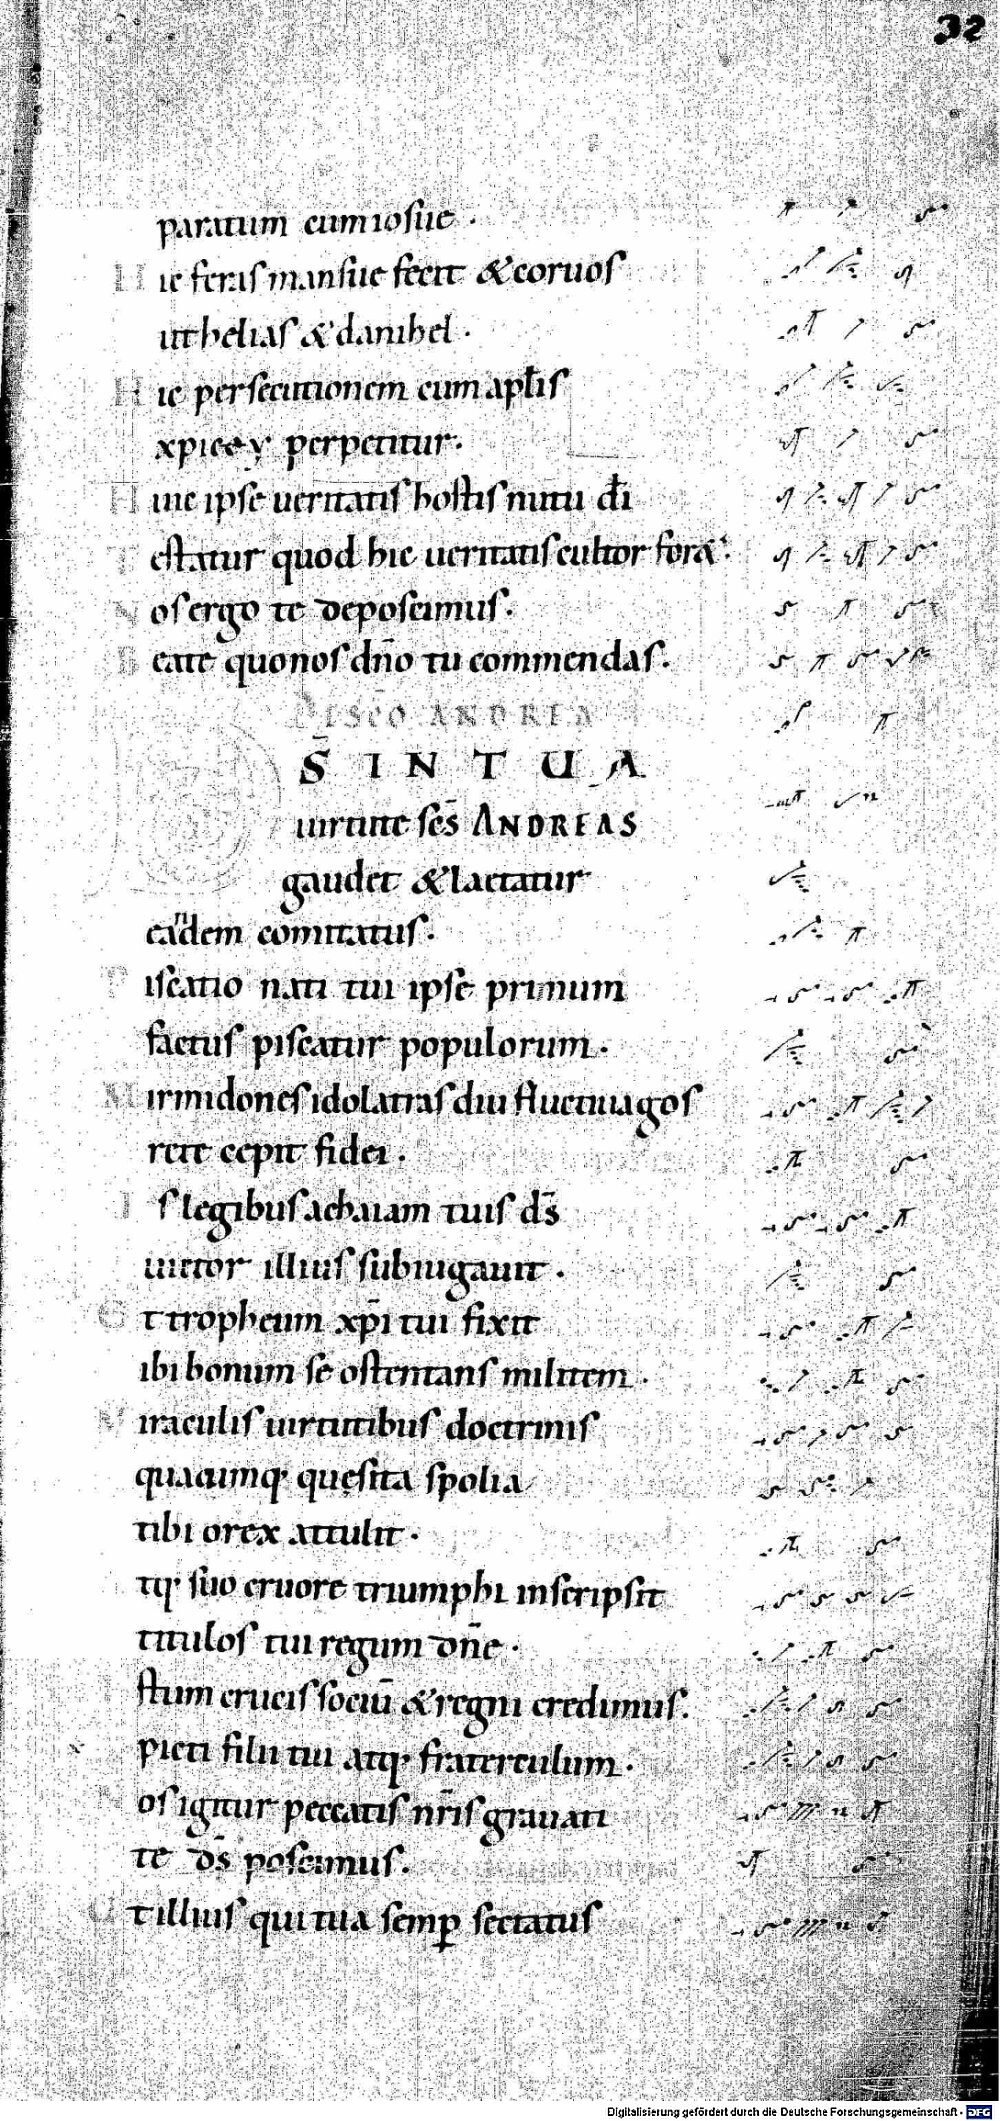 32
paratum cum iosue ·
Hic feras mansuefecit & coruos
ut helias & danihel ·
Hic persecutionem cum apłis
xpicęy perpetitur ·
Hinc ipse ueritatis hostis nutu dī
Testatur quod hic ueritatis cultor foret ·
Nos ergo te deposcimus ·
Beate quo nos dño tu commendas ·
DE SCO ANDREA
DS̄ IN TUA
uirtute scs̄ ANDREAS
gaudet & laetatur
eandem comitatus ·
Piscatio nati tui ipse primum
factus piscatur populorum ·
Mirmidones idolatras diu fluctiuagos
rete cepit fidei ·
Is legibus achaiam tuis ds̄
uictor illius subiugauit ·
Et tropheum xpī tui fixit
ibi bonum se ostentans militem ·
Miraculis uirtutibus doctrinis
quacumq; quęsita spolia
tibi o rex attulit ·
tq; suo cruore triumphi inscripsit
titulos tui regum dñe ·
stum crucis sociū & regni credimus ·
picti filii tui atq; fraterculum ·
Nos igitur peccatis nr̄is grauati
te ds̄ poscimus ·
Ut illius qui tua semp sectatus
Digitalisierung gefördert durch die Deutsche Forschungsgemeinschaft - DFG